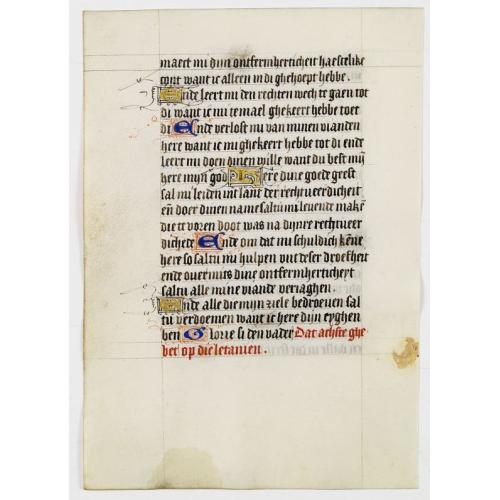 maect mi dijn ontfermherticheit haestelike
cont want ic alleen in di ghehoept hebbe.
Ende leert mi den rechten wech te gaen tot
di want ic mi temael ghekeert hebbe toet
di Ende verlost mi van minen vianden
here want ic mi ghekeert hebbe tot di ende
leert mi doen dinen wille want du best mijn
here mijn god Here dine goede geest
sal mi leiden int lant der rechtveerdicheit
eñ doer dinen name saltu mi levende makē
die te voren doot was na dijnre rechtveer
dichede Ende om dat mi schuldich kēne
here so saltu mi hulpen uut deser droefheit
ende overmits dine ontfermherticheyt
saltu alle mine viande veriaghen.
Ende alle die mijn ziele bedroeven sal
tu verdoemen want ic here dijn eyghen
ben Glorie si den vader Dat achste ghe
bet op die letanien.